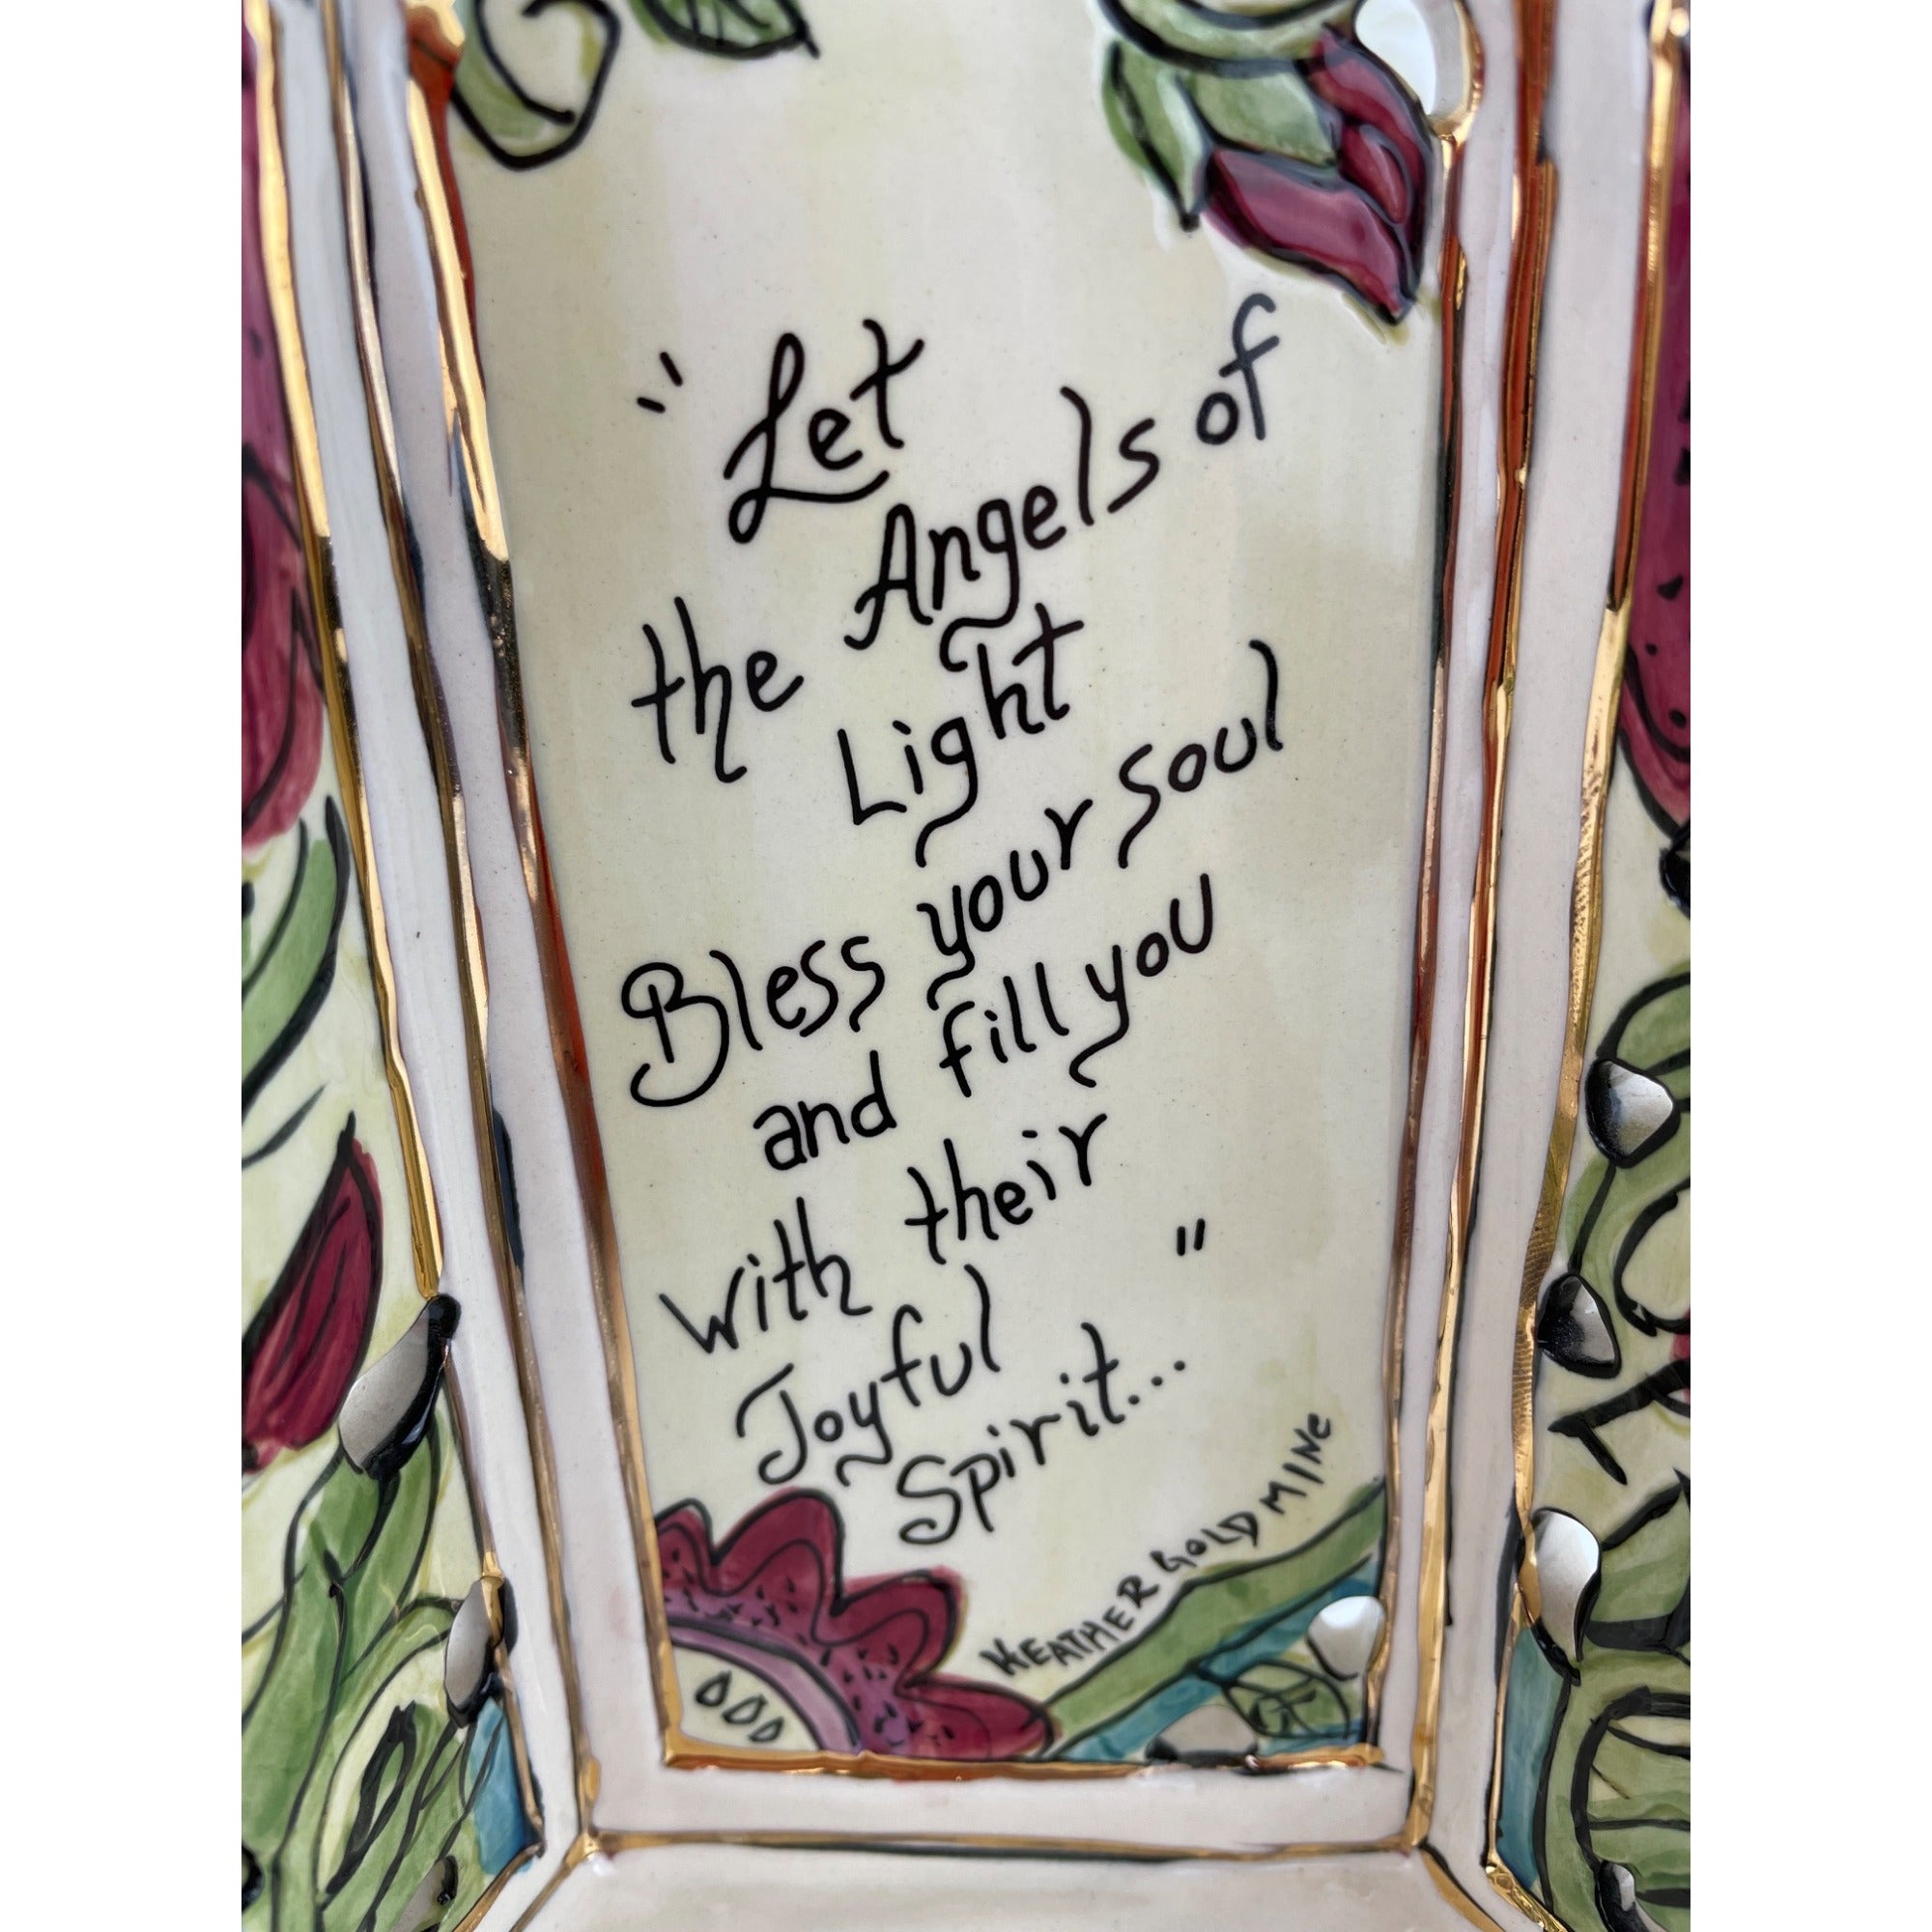 "Let
the Angels of
Light
Bless your soul
and fill you
with their
Joyful
Spirit..."
HEATHER GOLDMINE